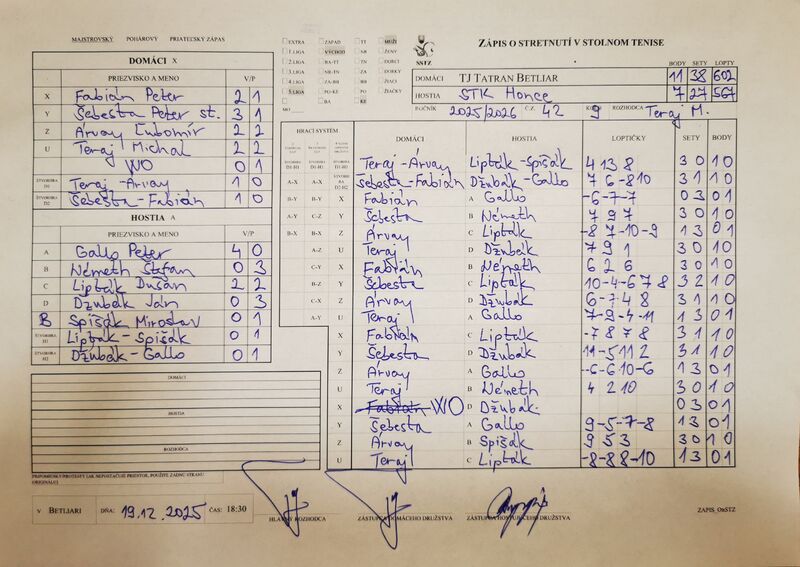 MAJSTROVSKÝ POHÁROVÝ PRIATEĽSKÝ ZÁPAS
DOMÁCI X
PRIEZVISKO A MENO V/P
X Fabián Peter 2 1
Y Šebesta Peter st. 3 1
Z Árvay Ľubomír 2 2
U Teraj Michal 2 2
WO 0 1
ŠTVORHRA D1 Teraj - Árvay 1 0
ŠTVORHRA D2 Šebesta - Fabián 1 0
HOSTIA A
PRIEZVISKO A MENO V/P
A Gallo Peter 4 0
B Németh Štefan 0 3
C Lipták Dušan 2 2
D Džubák Ján 0 3
B Spišák Miroslav 0 1
ŠTVORHRA H1 Lipták - Spišák 0 1
ŠTVORHRA H2 Džubák - Gallo 0 1
DOMÁCI
HOSTIA
ROZHODCA
PRIPOMIENKY/PROTESTY (AK NEPOSTAČUJE PRIESTOR, POUŽITE ZADNÚ STRANU ORIGINÁLU)
EXTRA ZÁPAD TT MUŽI
1.LIGA VÝCHOD NR ŽENY
2.LIGA BA-TT ZN DORCI
3.LIGA NR-TN ZA DORKY
4.LIGA ZA-BB BB ŽIACI
5.LIGA PO-KE PO ŽIAČKY
BA KE
SSTZ
ZÁPIS O STRETNUTÍ V STOLNOM TENISE
BODY SETY LOPTY
DOMÁCI TJ TATRAN BETLIAR 11 38 602
HOSTIA STK Honce 7 27 567
ROČNÍK 2025/2026 Č.Z. 42 KOLO 9 ROZHODCA Teraj M.
HRACÍ SYSTÉM DOMÁCI HOSTIA LOPTIČKY SETY BODY
Teraj - Árvay Lipták - Spišák 4 13 8 3 0 1 0
A-X Šebesta - Fabián Džubák - Gallo 7 6 -8 10 3 1 1 0
B-Y B-Y X Fabián A Gallo -6 -7 -7 0 3 0 1
A-Y C-Z Y Šebesta B Németh 7 9 7 3 0 1 0
B-X B-X Z Árvay C Lipták -8 7 -10 -9 1 3 0 1
A-Z U Teraj D Džubák 7 9 1 3 0 1 0
C-Y X Fabián B Németh 6 2 6 3 0 1 0
B-Z Y Šebesta C Lipták 10 -4 -6 7 8 3 2 1 0
C-X Z Árvay D Džubák 6 -7 4 8 3 1 1 0
A-Y U Teraj A Gallo 7 -9 -4 -11 1 3 0 1
X Fabián C Lipták -7 8 7 8 3 1 1 0
Y Šebesta D Džubák 11 -5 11 2 3 1 1 0
Z Árvay A Gallo -6 -6 10 -6 1 3 0 1
U Teraj B Németh 4 2 10 3 0 1 0
X Fabián WO D Džubák 0 3 0 1
Y Šebesta A Gallo 9 -5 -7 -8 1 3 0 1
Z Árvay B Spišák 9 5 3 3 0 1 0
U Teraj C Lipták -8 -8 8 -10 1 3 0 1
V BETLIARI DŇA: 19.12.2025 ČAS: 18:30
HLAVNÝ ROZHODCA ZÁSTUPCA DOMÁCEHO DRUŽSTVA ZÁSTUPCA HOSŤUJÚCEHO DRUŽSTVA ZAPIS_OnSTZ